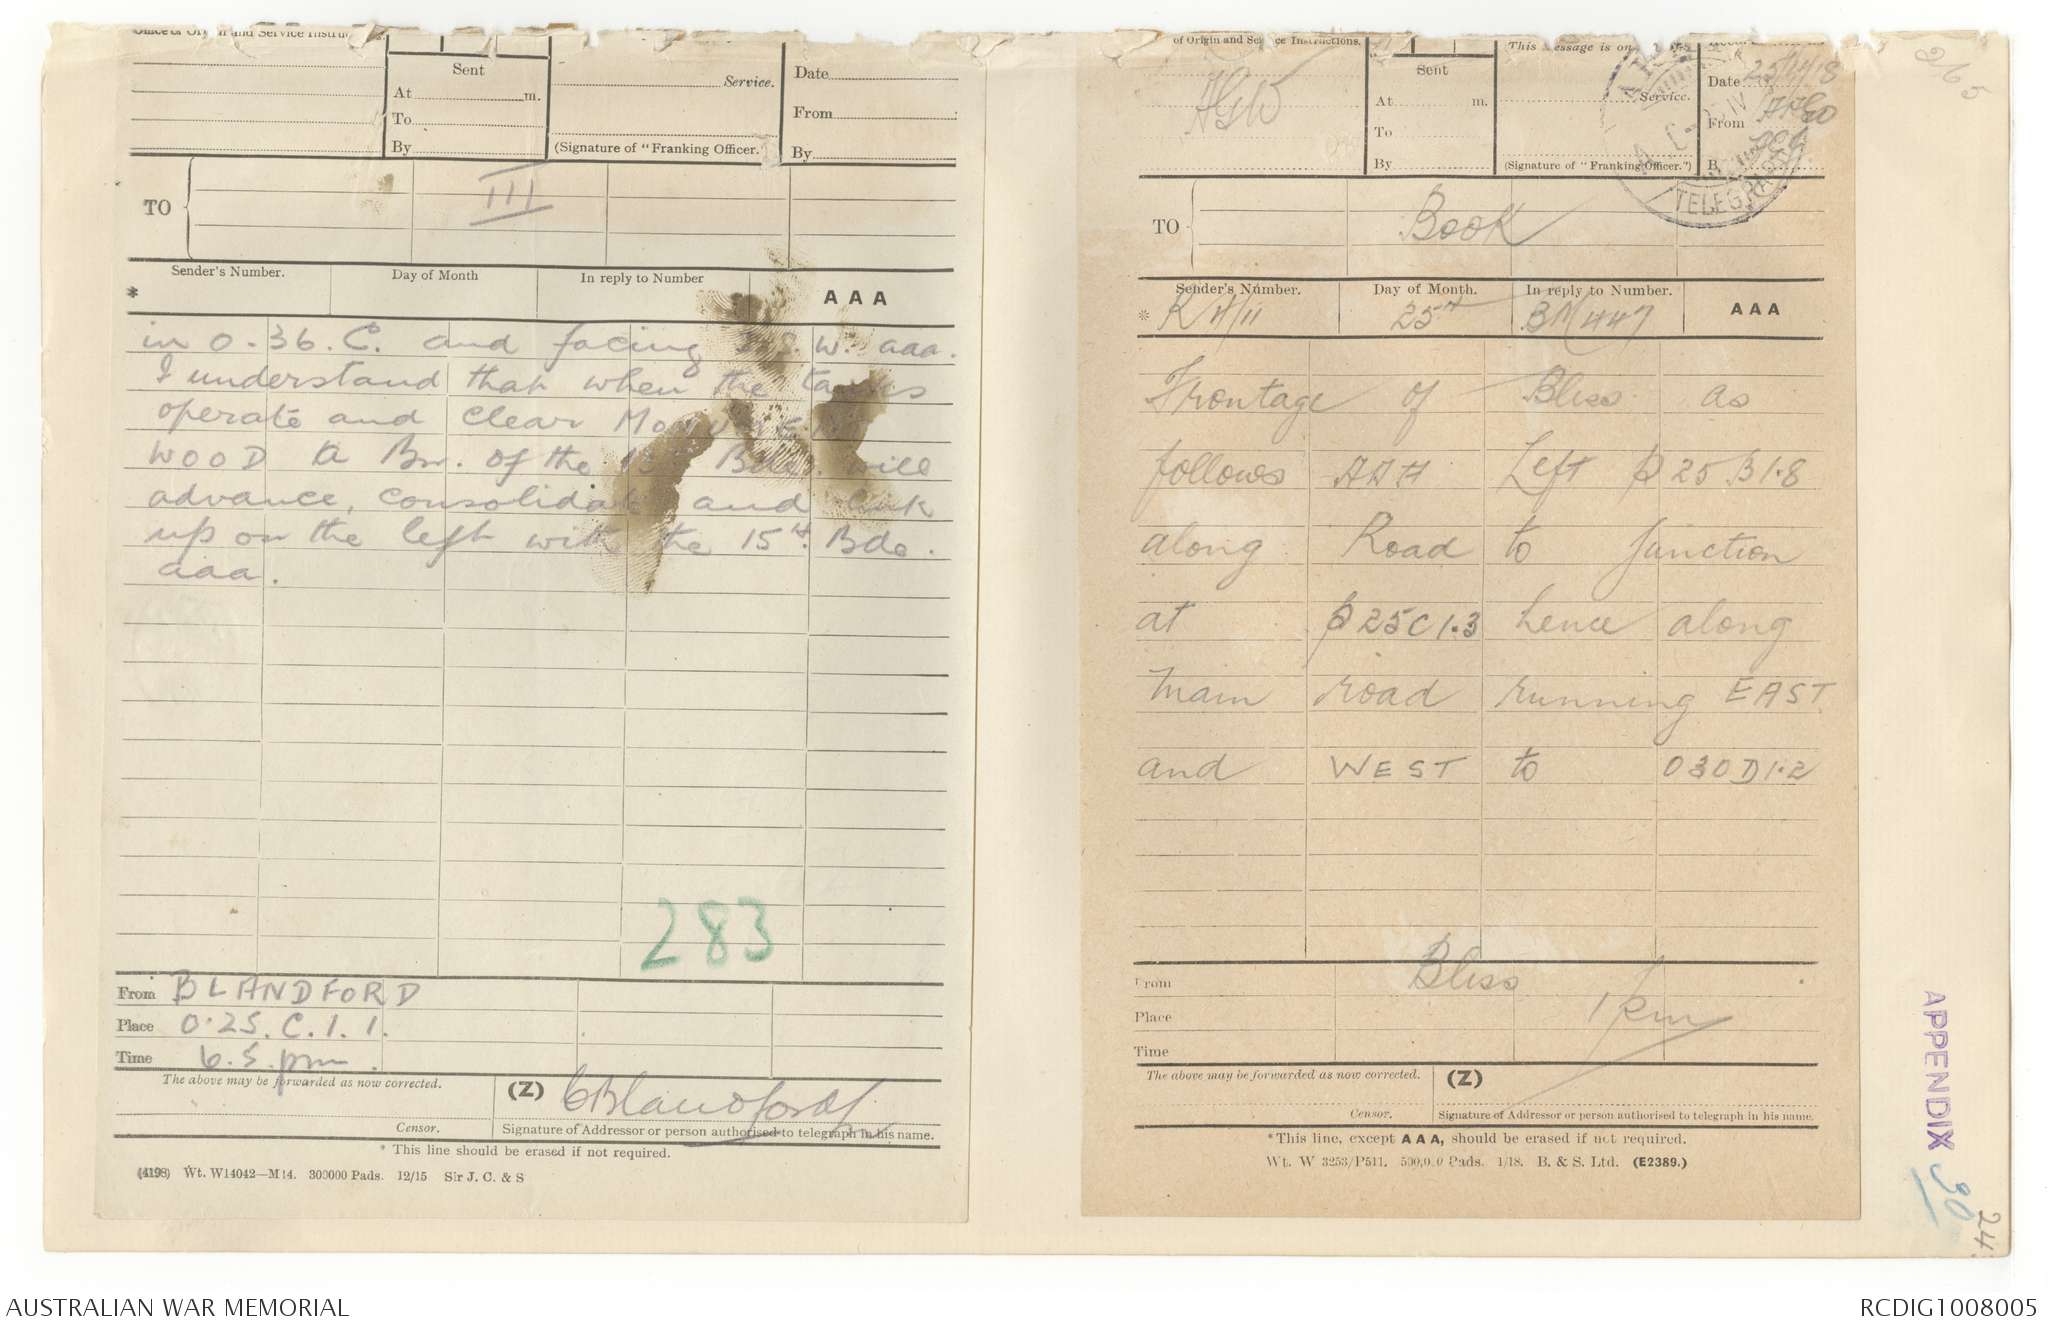 Office of Origin and Service Instructions.
Sent
At m.
To
By
Service.
(Signature of "Franking Officer.")
Date
From
By
III
TO
Sender's Number.
Day of Month
In reply to Number
AAA
*
in O.36.C. and facing W. aaa.
I understand that when the tanks
operate and clear MONUMENT
WOOD a Bn. of the Bde. will
advance, consolidate and link
up on the left with the 15th Bde.
aaa.
283
From BLANDFORD
Place O.25.C.1.1.
Time 6.5.pm.
The above may be forwarded as now corrected.
(Z)
CBlandford
Censor.
Signature of Addressor or person authorised to telegraph in his name.
* This line should be erased if not required.
(4198) Wt. W14042—M14. 300000 Pads. 12/15 Sir J. C. & S
265
of Origin and Service Instructions.
AGW
Sent
At m.
To
By
This message is on
Service.
(Signature of "Franking Officer.")
Date 25/4/18
From
B
TELEGRAPHS
TO
Book
Sender's Number.
Day of Month.
In reply to Number.
AAA
* R4/11
25th
BM447
Frontage of Bliss as
follows AAA Left P25B1.8
along Road to junction
at P25C1.3 hence along
main road running EAST
and WEST to O30D1.2
From
Bliss
Place
1 pm
Time
The above may be forwarded as now corrected.
(Z)
Censor.
Signature of Addressor or person authorised to telegraph in his name.
*This line, except AAA, should be erased if not required.
Wt. W 3253/P511. 500,000 Pads. 1/18. B. & S. Ltd. (E2389.)
APPENDIX 30
24
AUSTRALIAN WAR MEMORIAL
RCDIG1008005